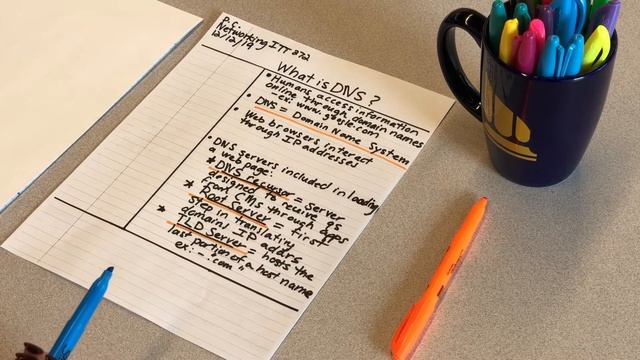 P.C.
Networking ITT 872
12/12/19
What is DNS?
• Humans access information
online through domain names
- ex: www.google.com
• DNS = Domain Name System
• Web browsers interact
through IP addresses
• DNS servers included in loading
a webpage:
* DNS Recursor = server
designed to receive qs
from CMS through apps
* Root Server = first
step in translating
domains IP addrs
* TLD Server = hosts the
last portion of a host name
ex: - .com